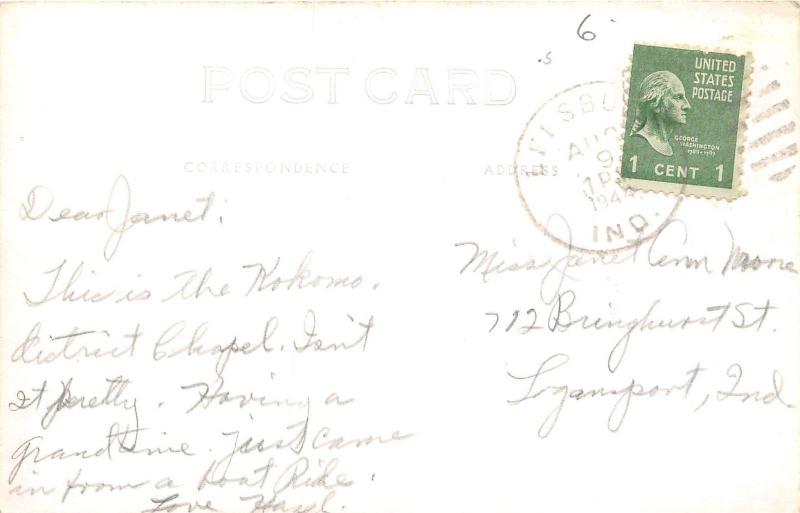 6
s
POST CARD
UNITED
STATES
POSTAGE
GEORGE
WASHINGTON
1789-1797
1 CENT 1
AUG
9
1 P
1944
IND.
CORRESPONDENCE
ADDRESS
Dear Janet:
This is the Kokomo.
district Chapel. Isn't
it pretty. Having a
grand time. Just came
in from a boat Ride.
Love Hazel.
Miss Janet Ann Moore
712 Bringhurst St.
Logansport, Ind